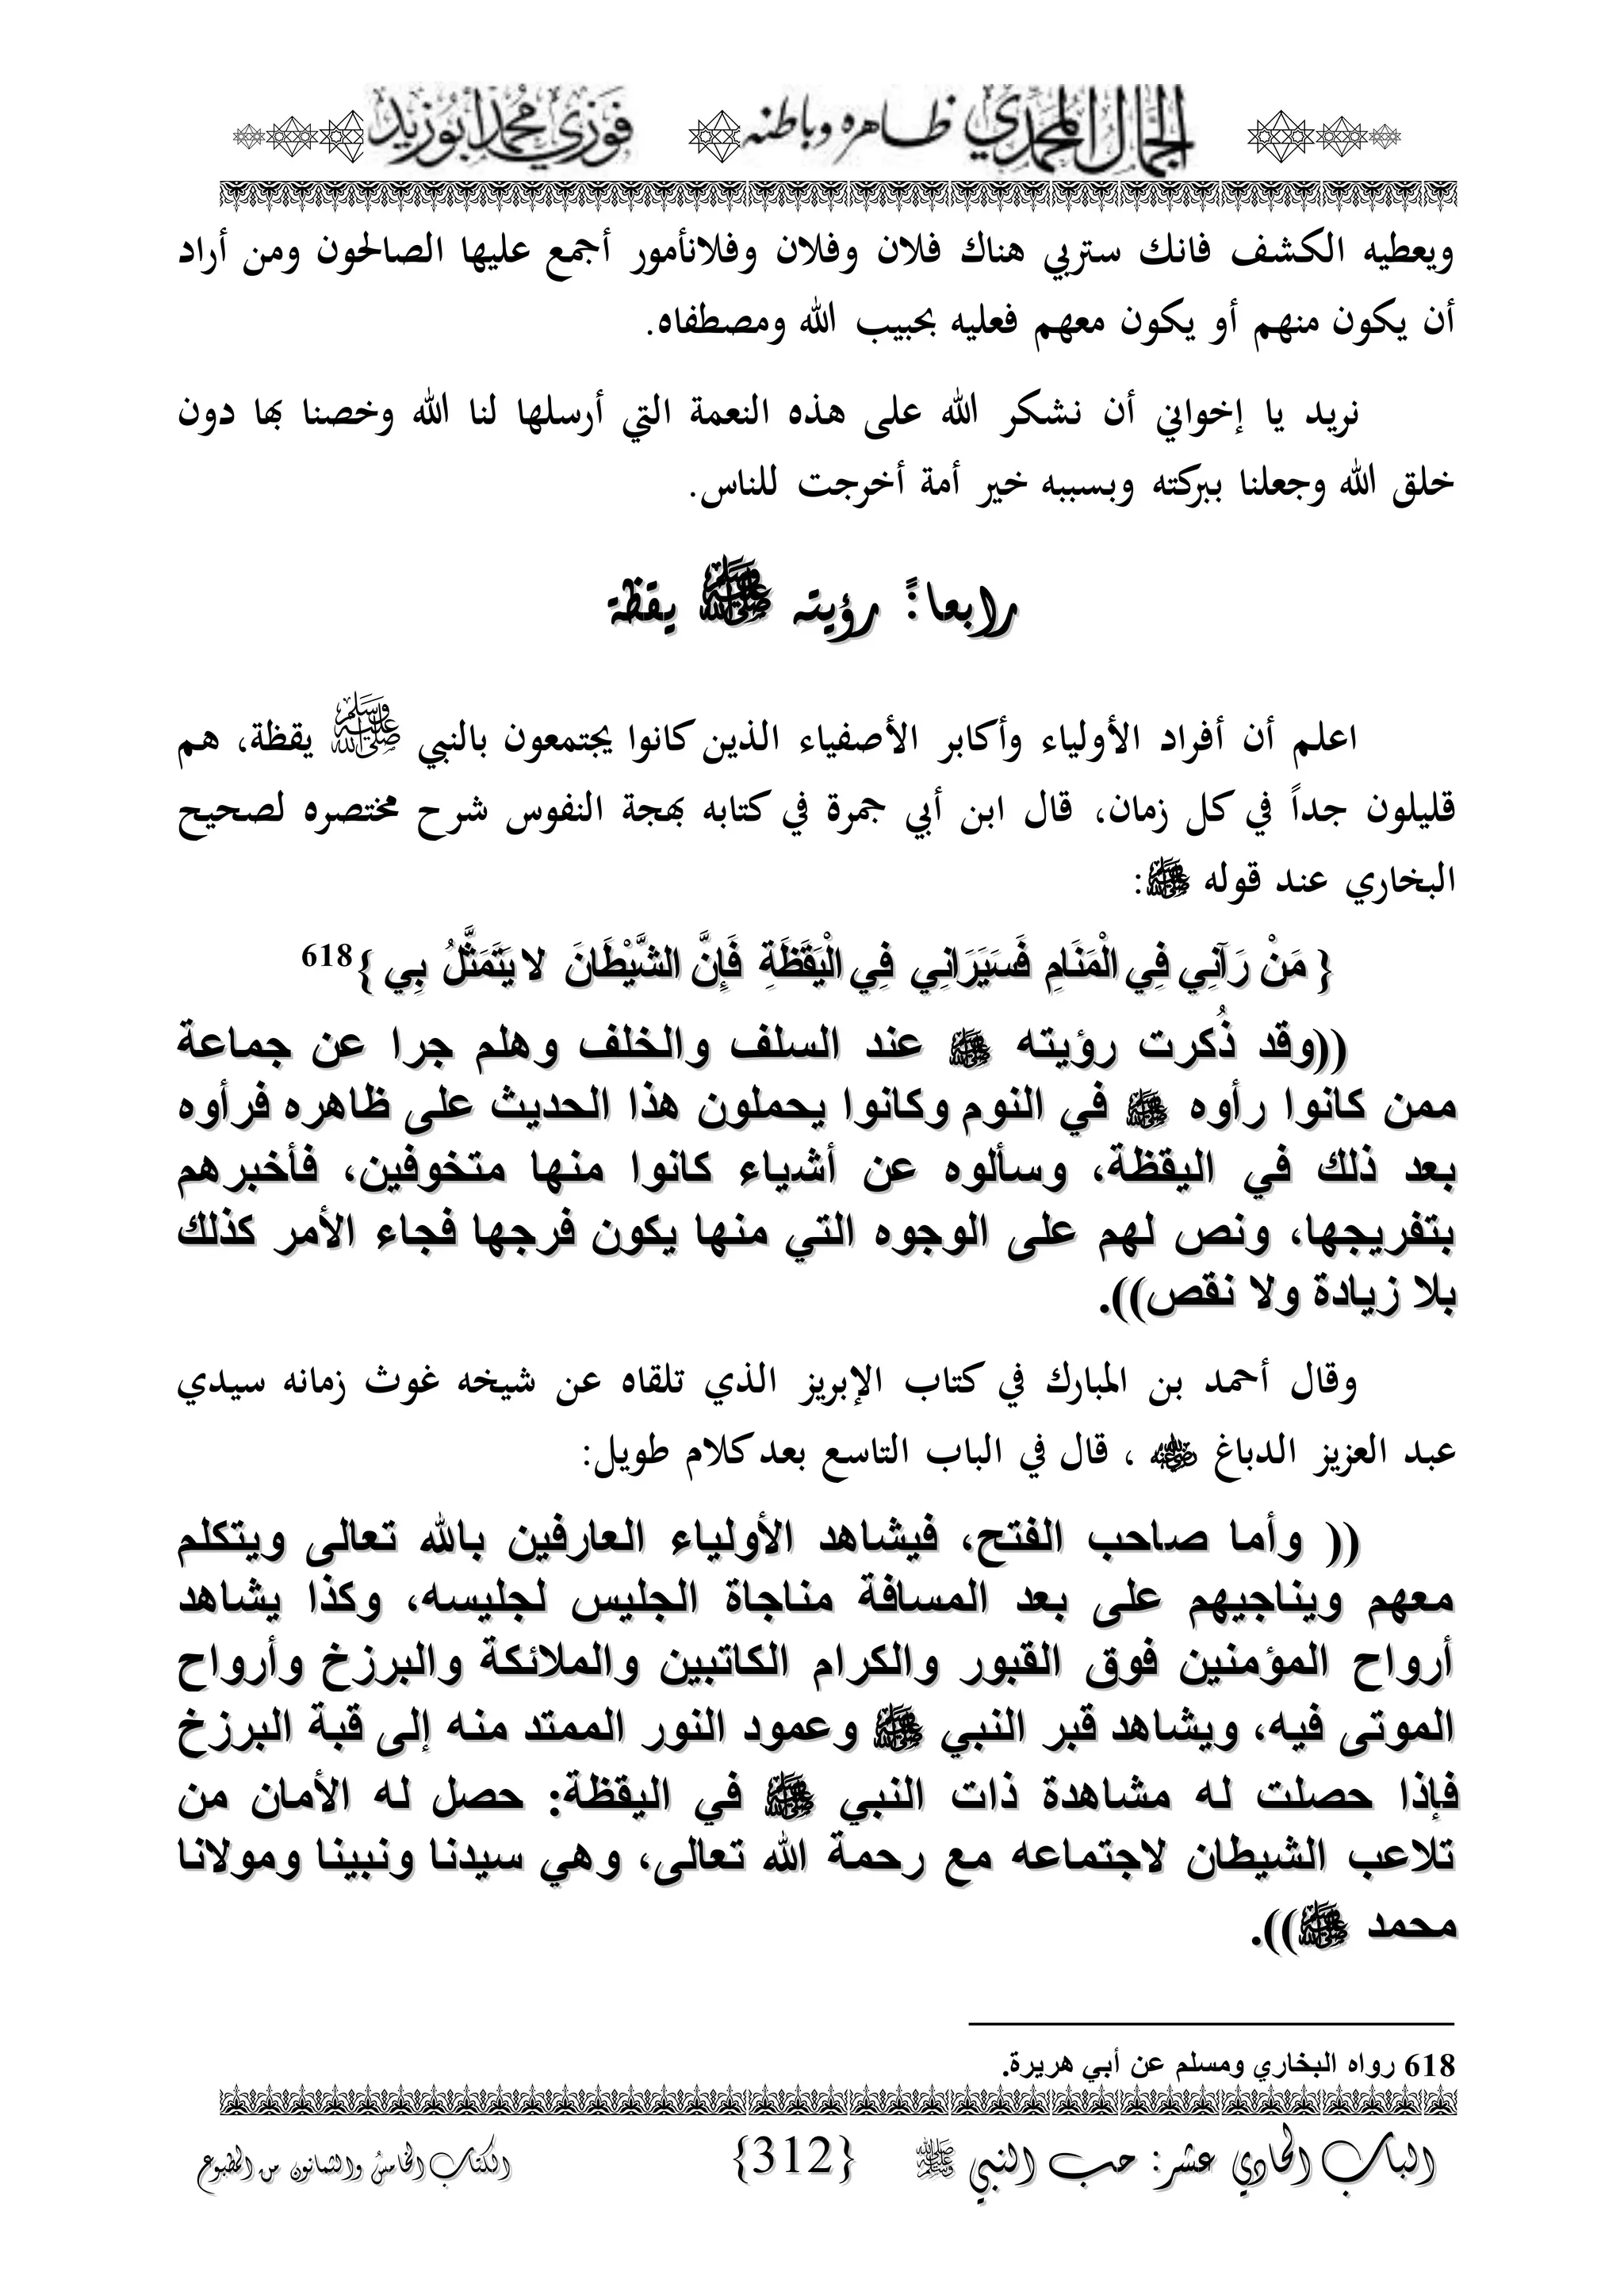 الجمال المحمدي ظاهره وباطنه فوزي محمد أبوزيد
ويعطيه الكشف فانك ستربي هناك فلان وفلان وفلانأمور أجمع عليها الصالحون ومن أراد
أن يكون منهم أو يكون معهم فعليه بحبيب الله ومصطفاه.
نريد يا إخواني أن نشكر الله على هذه النعمة التي أرسلها لنا الله وخصنا بها دون
خلق الله وجعلنا ببركته وبسببه خير أمة أخرجت للناس.
رابعاً: رؤيته ﷺ يقظة
اعلم أن أفراد الأولياء وأكابر الأصفياء الذين كانوا يجتمعون بالنبي ﷺ يقظة، هم
قليلون جداً في كل زمان، قال ابن أبي جمرة في كتابه بهجة النفوس شرح مختصره لصحيح
البخاري عند قوله ﷺ:
{ مَنْ رَآنِي فِي الْمَنَامِ فَسَيَرَانِي فِي الْيَقَظَةِ فَإِنَّ الشَّيْطَانَ لا يَتَمَثَّلُ بِي }618
((وقد ذُكرت رؤيته ﷺ عند السلف والخلف وهلم جرا عن جماعة
ممن كانوا رأوه ﷺ في النوم وكانوا يحملون هذا الحديث على ظاهره فرأوه
بعد ذلك في اليقظة، وسألوه عن أشياء كانوا منها متخوفين، فأخبرهم
بتفريجها، ونص لهم على الوجوه التي منها يكون فرجها فجاء الأمر كذلك
بلا زيادة ولا نقص)).
وقال أحمد بن المبارك في كتاب الإبريز الذي تلقاه عن شيخه غوث زمانه سيدي
عبد العزيز الدباغ ﵁ ، قال في الباب التاسع بعد كلام طويل:
(( وأما صاحب الفتح، فيشاهد الأولياء العارفين بالله تعالى ويتكلم
معهم ويناجيهم على بعد المسافة مناجاة الجليس لجليسه، وكذا يشاهد
أرواح المؤمنين فوق القبور والكرام الكاتبين والملائكة والبرزخ وأرواح
الموتى فيه، ويشاهد قبر النبي ﷺ وعمود النور الممتد منه إلى قبة البرزخ
فإذا حصلت له مشاهدة ذات النبي ﷺ في اليقظة: حصل له الأمان من
تلاعب الشيطان لاجتماعه مع رحمة الله تعالى، وهي سيدنا ونبينا ومولانا
محمد ﷺ)).
618 رواه البخاري ومسلم عن أبي هريرة.
الباب الحادي عشر: حب النبي ﷺ {312} الكتاب الخامس والثمانون من المطبوع